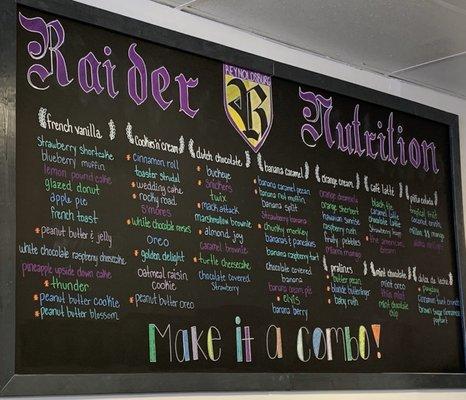 Raider Nutrition
REYNOLDSBURG
R
french vanilla
Strawberry Shortcake
blueberry muffin
lemon pound cake
glazed donut
apple pie
french toast
peanut butter & jelly
white chocolate raspberry cheesecake
pineapple upside down cake
thunder
peanut butter cookie
peanut butter blossom
Cookies 'n' cream
cinnamon roll
toaster strudel
wedding cake
rocky road
S'mores
white chocolate
Oreo
golden delight
oatmeal raisin
cookie
peanut butter oreo
dutch chocolate
buckeye
Snickers
twix
mack attack
marshmallow brownie
almond joy
caramel brownie
turtle cheesecake
chocolate covered
Strawberry
banana caramel
banana caramel pecan
banana nut muffin
banana split
Strawberry banana
chunky monkey
bananas & pancakes
banana raspberry tart
chocolate covered
banana
banana cream pie
elvis
banana berry
orange cream
orange dreamsicle
orange sherbet
hawaiian sunrise
raspberry rush
fruity pebbles
miami mango
pralines
butter pecan
blondie butterfinger
baby ruth
café latté
black tie
caramel latte
chocolate
Strawberry
mint chocolate
mint oreo
thin mint
mint chocolate
chip
piña colada
tropical fruit
dulce de leche
payday
Cinnamon toast crunch
brown sugar cinnamon
poptart
Make it a combo!